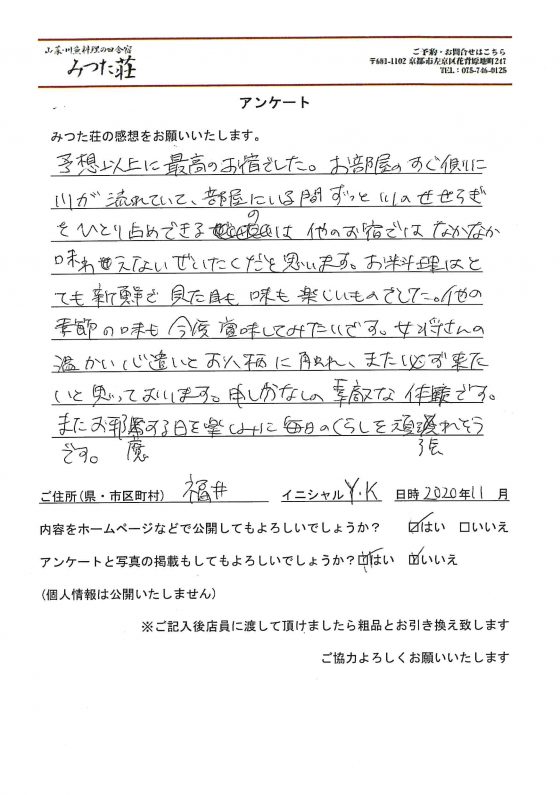 山菜・川魚料理の田舎宿
みつた荘
ご予約・お問合せはこちら
〒601-1102 京都市左京区花背原地町247
TEL: 075-746-0125
アンケート
みつた荘の感想をお願いいたします。
予想以上に最高のお宿でした。お部屋のすぐ側に
川が流れていて、部屋にいる間ずっと川のせせらぎ
をひとり占めできるのは他のお宿ではなかなか
味わえないぜいたくだと思います。お料理はと
ても新鮮で見た目も味も楽しいものでした。他の
季節の味も今度賞味してみたいです。女将さんの
温かい心遣いとお人柄に触れ、また必ず来た
いと思っております。申し分なしの素敵な体験です。
またお邪魔する日を楽しみに毎日のくらしを頑張れそう
です。
ご住所(県・市区町村) 福井 イニシャル Y.K 日時 2020年11月
内容をホームページなどで公開してもよろしいでしょうか? ☑はい □いいえ
アンケートと写真の掲載もしてもよろしいでしょうか? ☑はい ☑いいえ
(個人情報は公開いたしません)
※ご記入後店員に渡して頂けましたら粗品とお引き換え致します
ご協力よろしくお願いいたします